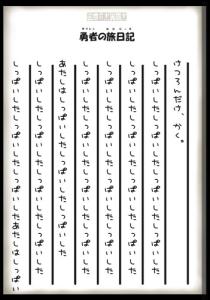 勇者の旅日記
けつろんだけ、かく。
しっぱいしたしっぱいしたしっぱいした
しっぱいしたしっぱいしたしっぱいした
しっぱいしたしっぱいしたしっぱいした
しっぱいしたしっぱいしたしっぱいした
あたしはしっぱいしたしっぱいした
しっぱいしたしっぱいしたしっぱいした
しっぱいしたしっぱいしたあたしはしっぱい